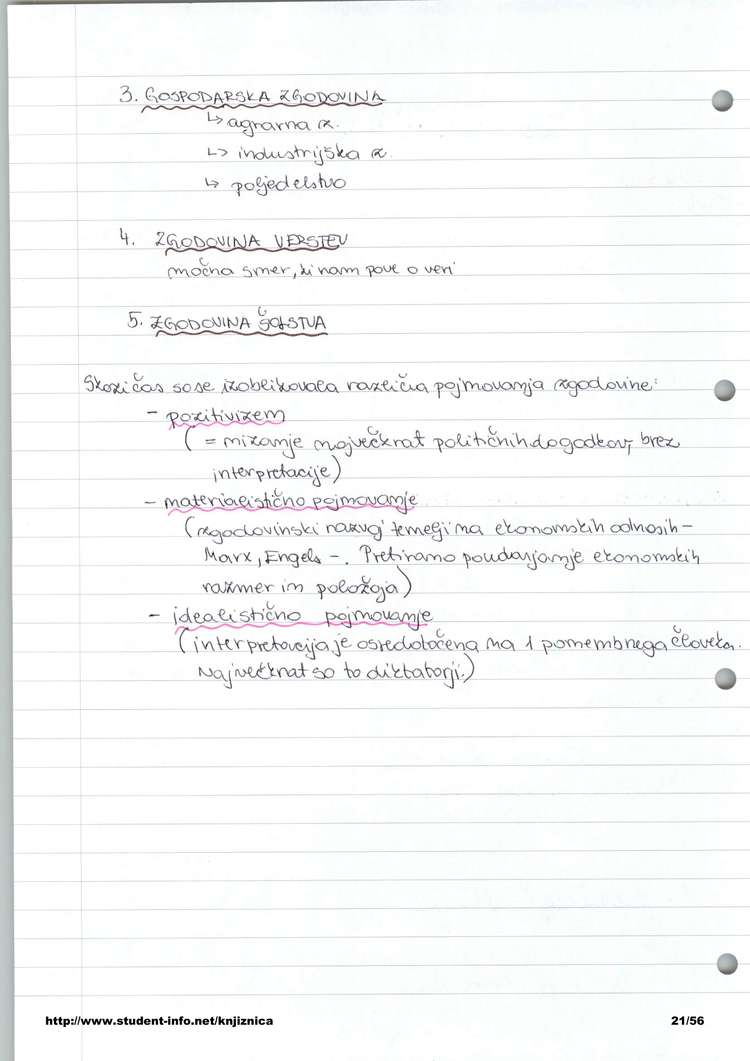 3. GOSPODARSKA ZGODOVINA
↳ agrarna z.
↳ industrijska z.
↳ poljedelstvo
4. ZGODOVINA VERSTEV
močna smer, ki nam pove o veri
5. ZGODOVINA ŠOLSTVA
Skozi čas so se izoblikovala različna pojmovanja zgodovine:
- pozitivizem
( = nizanje največkrat političnih dogodkov, brez
interpretacije)
- materialistično pojmovanje
(zgodovinski razvoj temelji na ekonomskih odnosih -
Marx, Engels -. Pretirano poudarjanje ekonomskih
razmer in položaja)
- idealistično pojmovanje
(interpretacija je osredotočena na 1 pomembnega človeka.
Največkrat so to diktatorji.)
http://www.student-info.net/knjiznica
21/56